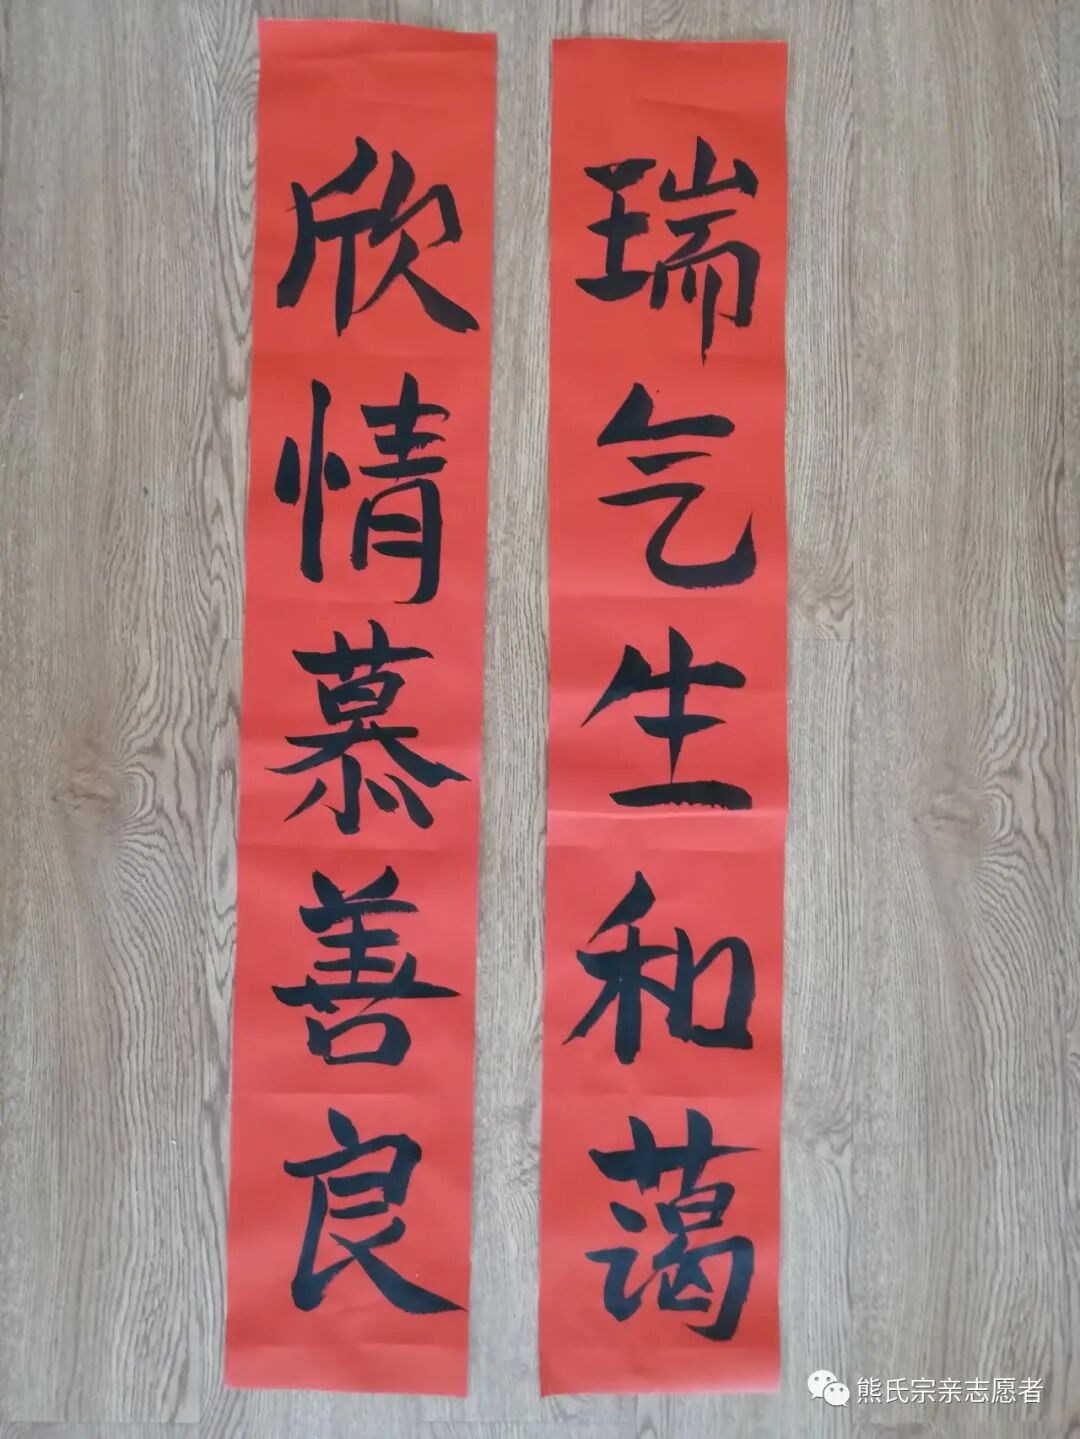 瑞气生和蔼
欣情慕善良
熊氏宗亲志愿者